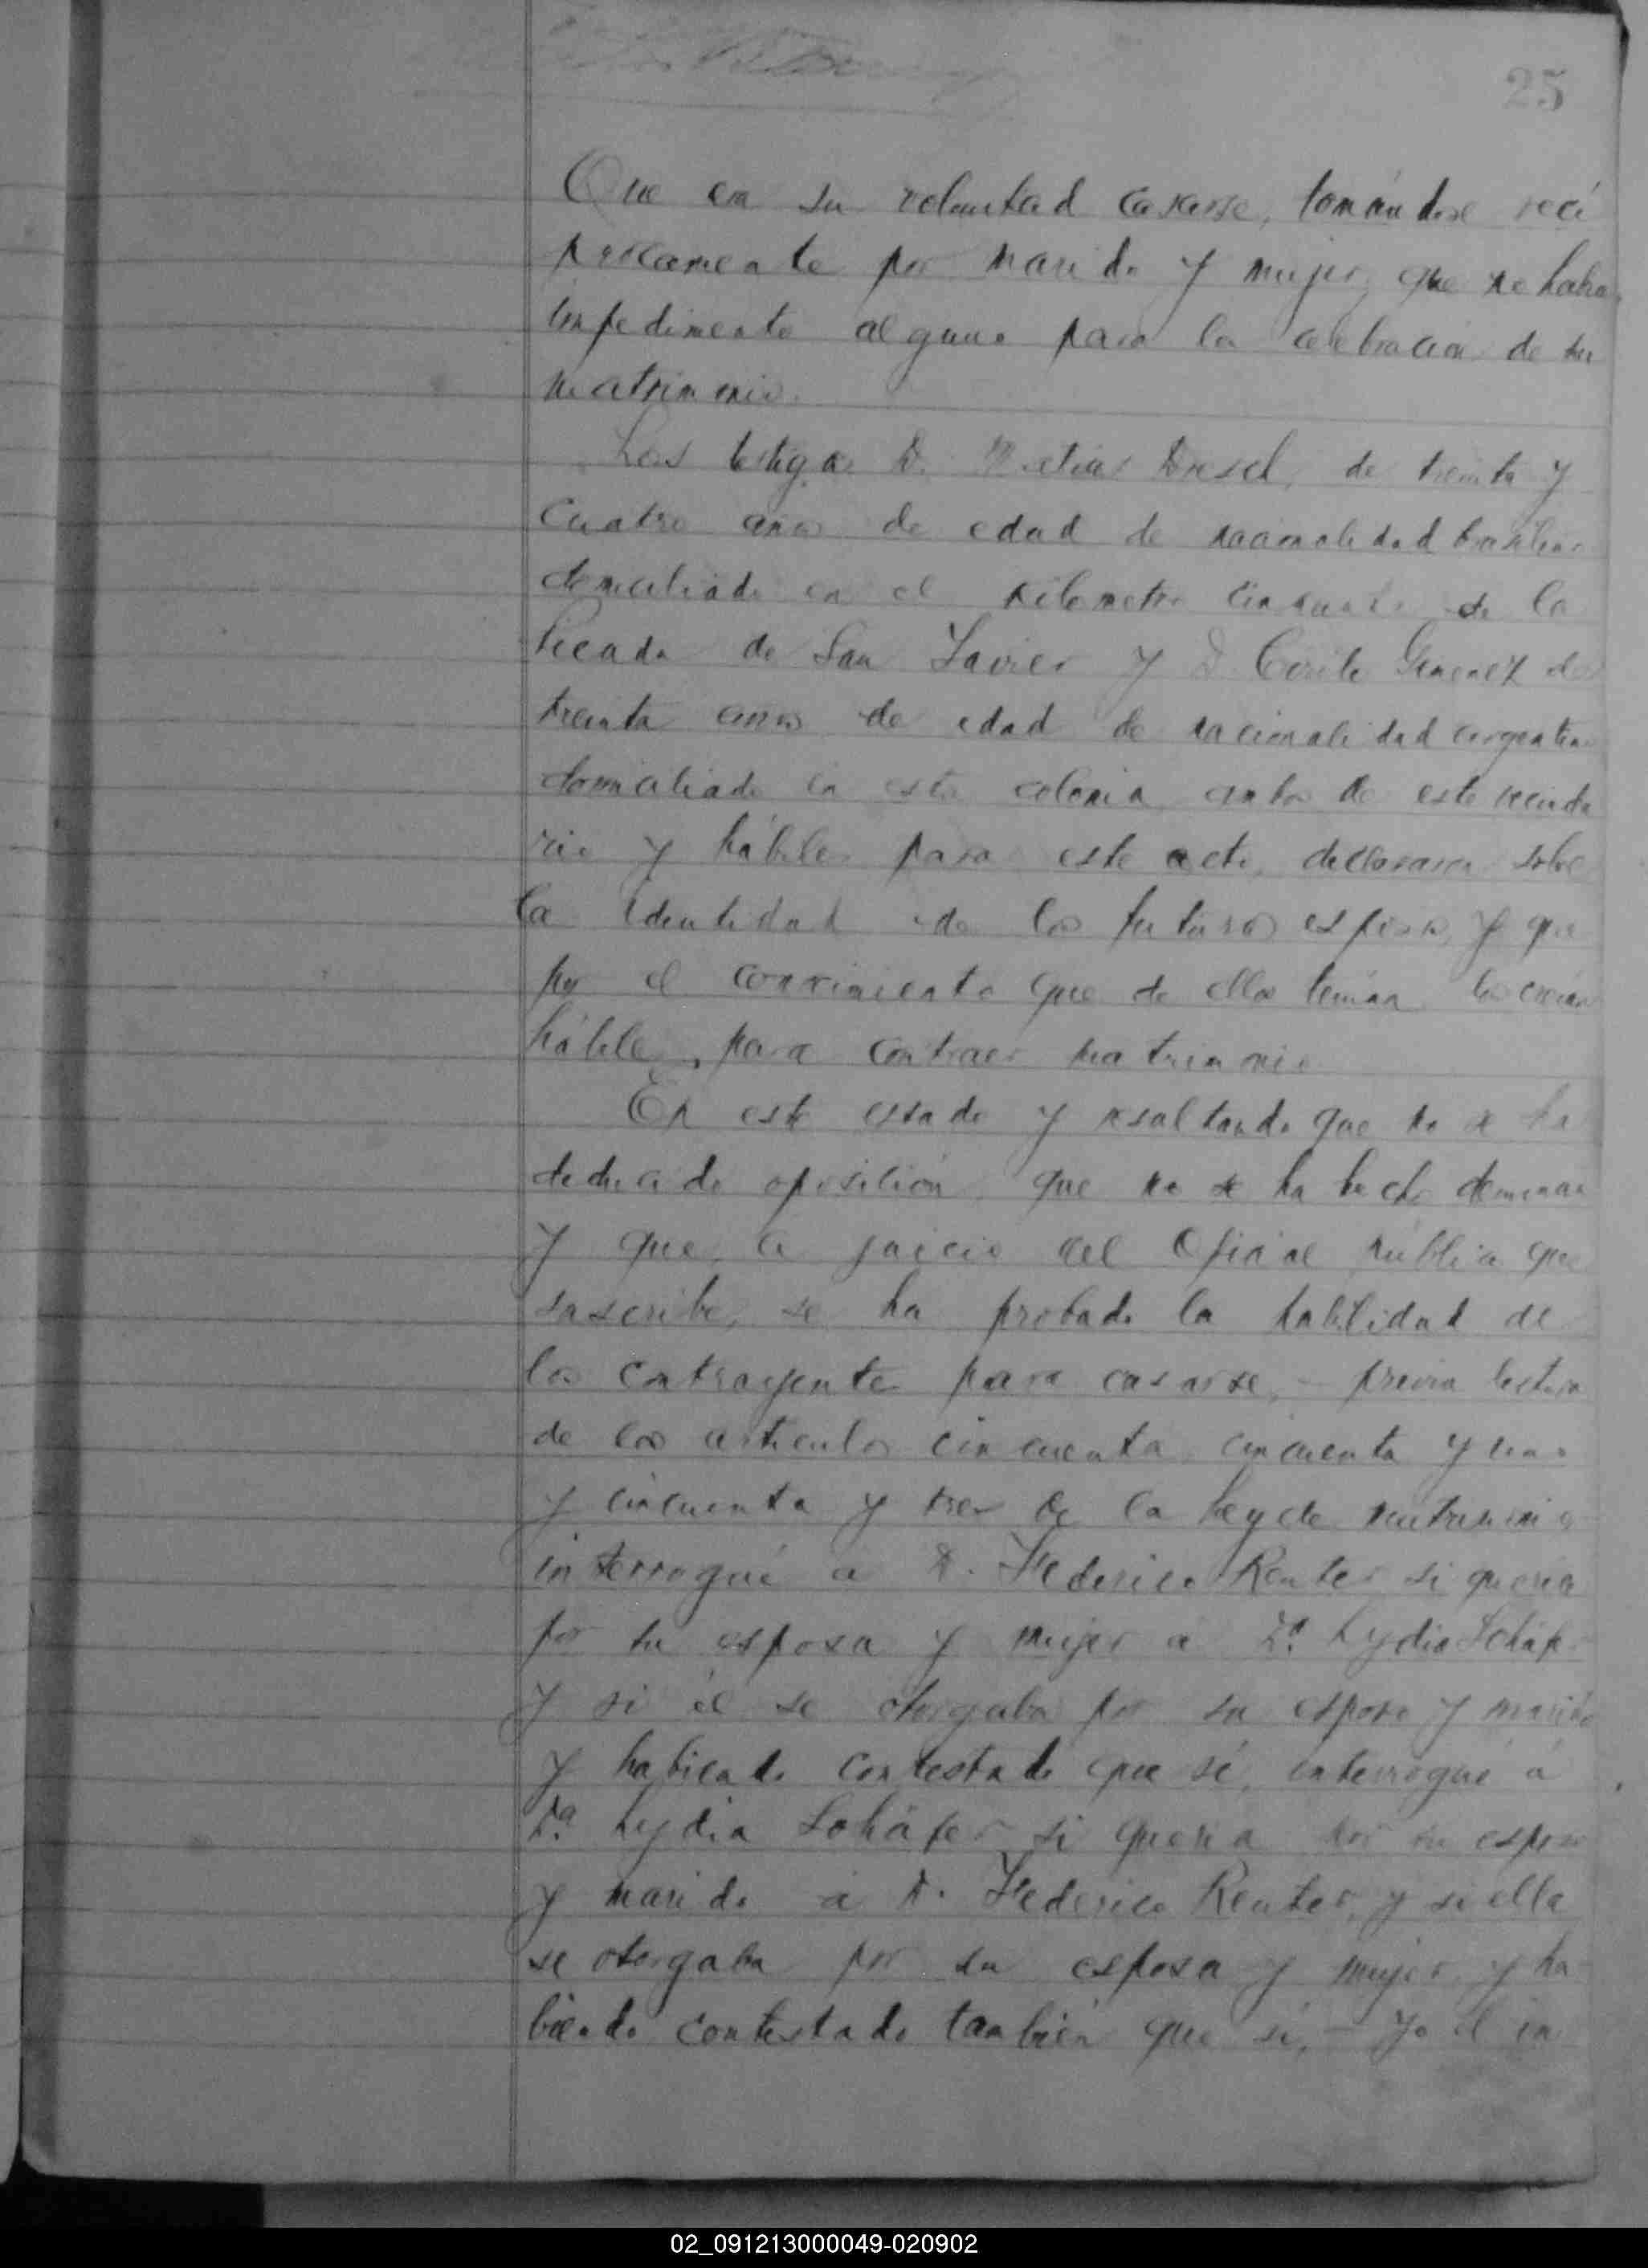 25
Que era su voluntad casarse, tomándose recí
procamente por marido y mujer, que no había
impedimento alguno para la celebración de su
matrimonio.
Los testigos D. Matias Dresel, de treinta y
cuatro años de edad de nacionalidad brasilera
domiciliado en el kilometro cincuenta de la
Picada de San Javier y D. Cirilo Gimenez de
treinta años de edad de nacionalidad argentina
domiciliado en esta colonia ambos de este vecinda
rio y hábiles para este acto, declararon sobre
la identidad de los futuros esposos, y que
por el conocimiento que de ellos tenían los creían
hábiles para contraer matrimonio.
En este estado y resultando que no se ha
deducido oposición, que no se ha hecho denuncia
y que, a juicio del Oficial público que
suscribe, se ha probado la habilidad de
los contrayentes para casarse, - previa lectura
de los artículos cincuenta, cincuenta y uno
y cincuenta y tres de la Ley de matrimonio
interrogué a D. Federico Reuter si quería
por su esposa y mujer a Dª. Lydia Schäfer
y si él se otorgaba por su esposo y marido
y habiendo contestado que sí, interrogué á
Dª. Lydia Schäfer si quería por su esposo
y marido a D. Federico Reuter, y si ella
se otorgaba por su esposa y mujer, y ha
biendo contestado también que sí, - yo el in
02_091213000049-020902